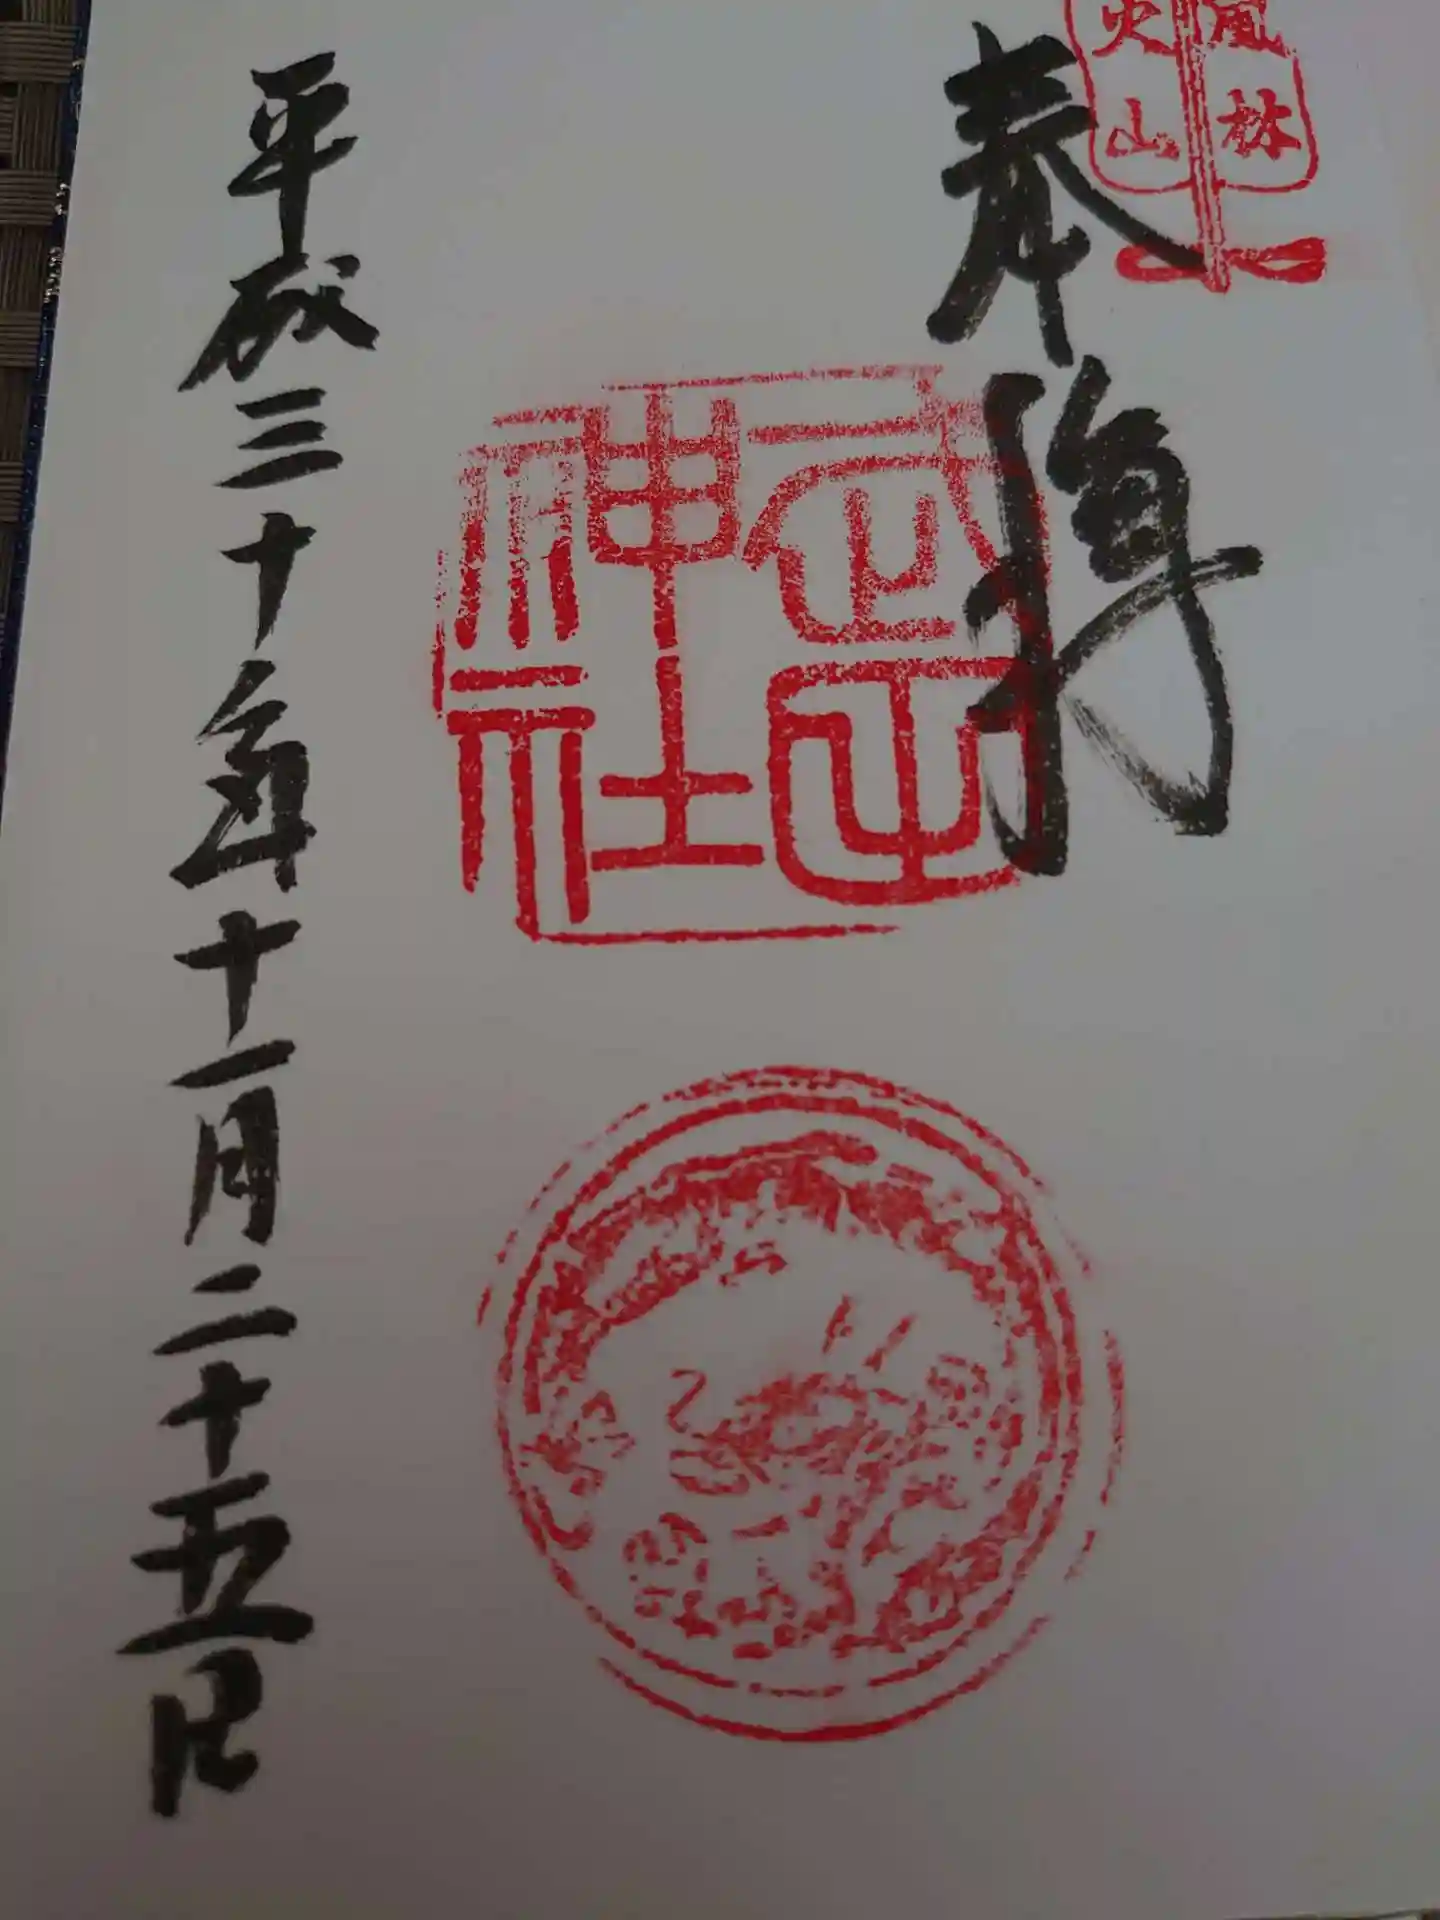 風林
火山
奉拝
武田
神社
平成三十年十一月二十五日